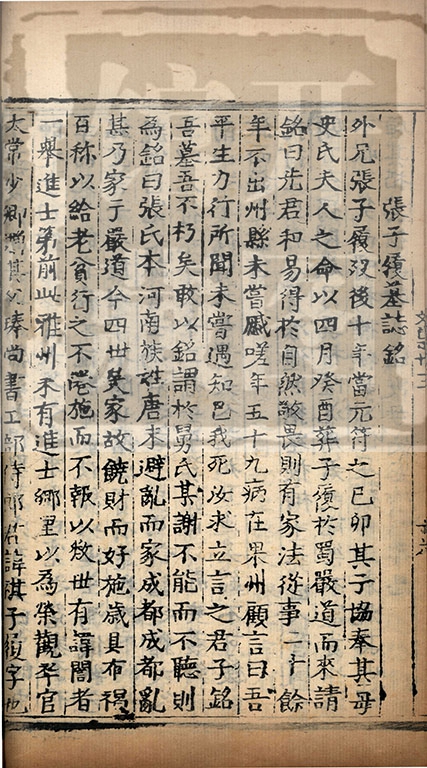 張子履墓誌銘
外兄張子履沒後十年當元符之己卯其子協奉其母
史氏夫人之命以四月癸酉葬子履於蜀嚴道而來請
銘曰先君和易得於自然敬畏則有家法從事二十餘
年不出州縣未嘗戚嗟年五十九病在果州顧言曰吾
平生力行所聞未嘗遇知己我死汝求立言之君子銘
吾墓吾不朽矣敢以銘謂於舅氏某謝不能而不聽則
為銘曰張氏本河南族姓唐末避亂而家成都成都亂
其乃家于嚴道今四世矣家故饒財而好施歲具布褐
百稱以給老貧行之不倦施而不報以數世有諱誾者
一舉進士第前此雅州未有進士鄉里以為榮觀卒官
太常少卿贈其父瑧尚書工部侍郎君諱祺子履字也